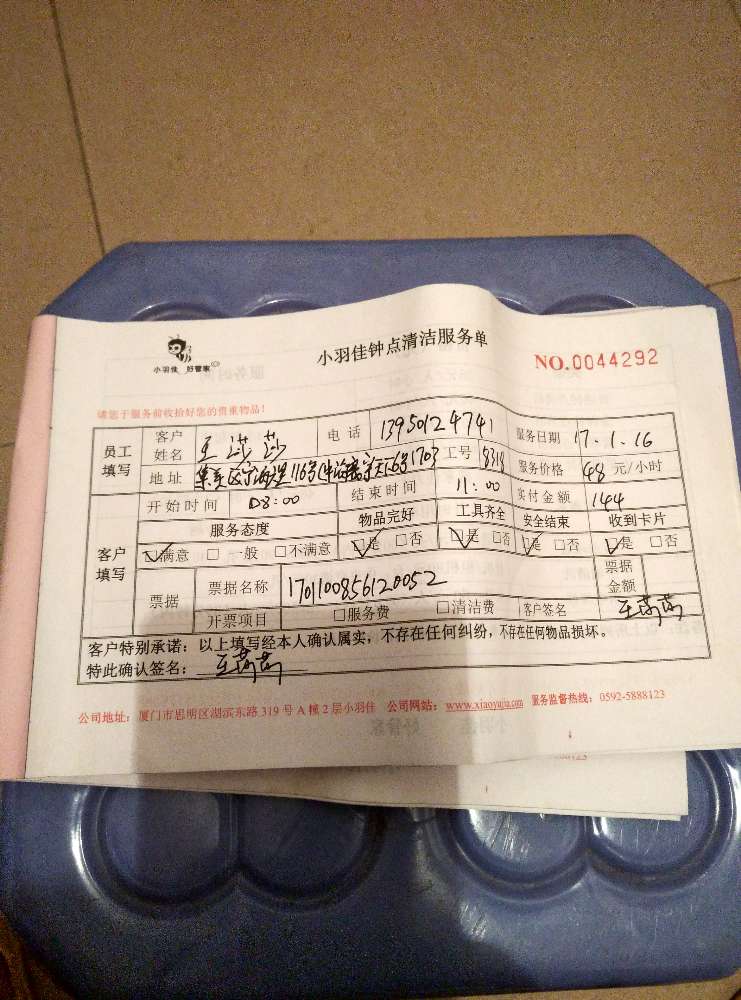 小羽佳 好管家
小羽佳钟点清洁服务单
NO.0044292
请您于服务前收拾好您的贵重物品!
员工填写 客户姓名 王莎莎 电话 13950124741 服务日期 17.1.16
地址 集美区宁海里116号 1703 工号 8318 服务价格 48 元/小时
客户填写 开始时间 08:00 结束时间 11:00 实付金额 144
服务态度 物品完好 工具齐全 安全结束 收到卡片
☑满意 □一般 □不满意 ☑是 □否 ☑是 □否 ☑是 □否 ☑是 □否
票据 票据名称 1701100856120052 票据金额
开票项目 □服务费 □清洁费 客户签名
客户特别承诺:以上填写经本人确认属实,不存在任何纠纷,不存在任何物品损坏。
特此确认签名:
公司地址:厦门市思明区湖滨东路319号A幢2层小羽佳 公司网站:www.xiaoyujia.com 服务监督热线:0592-5888123